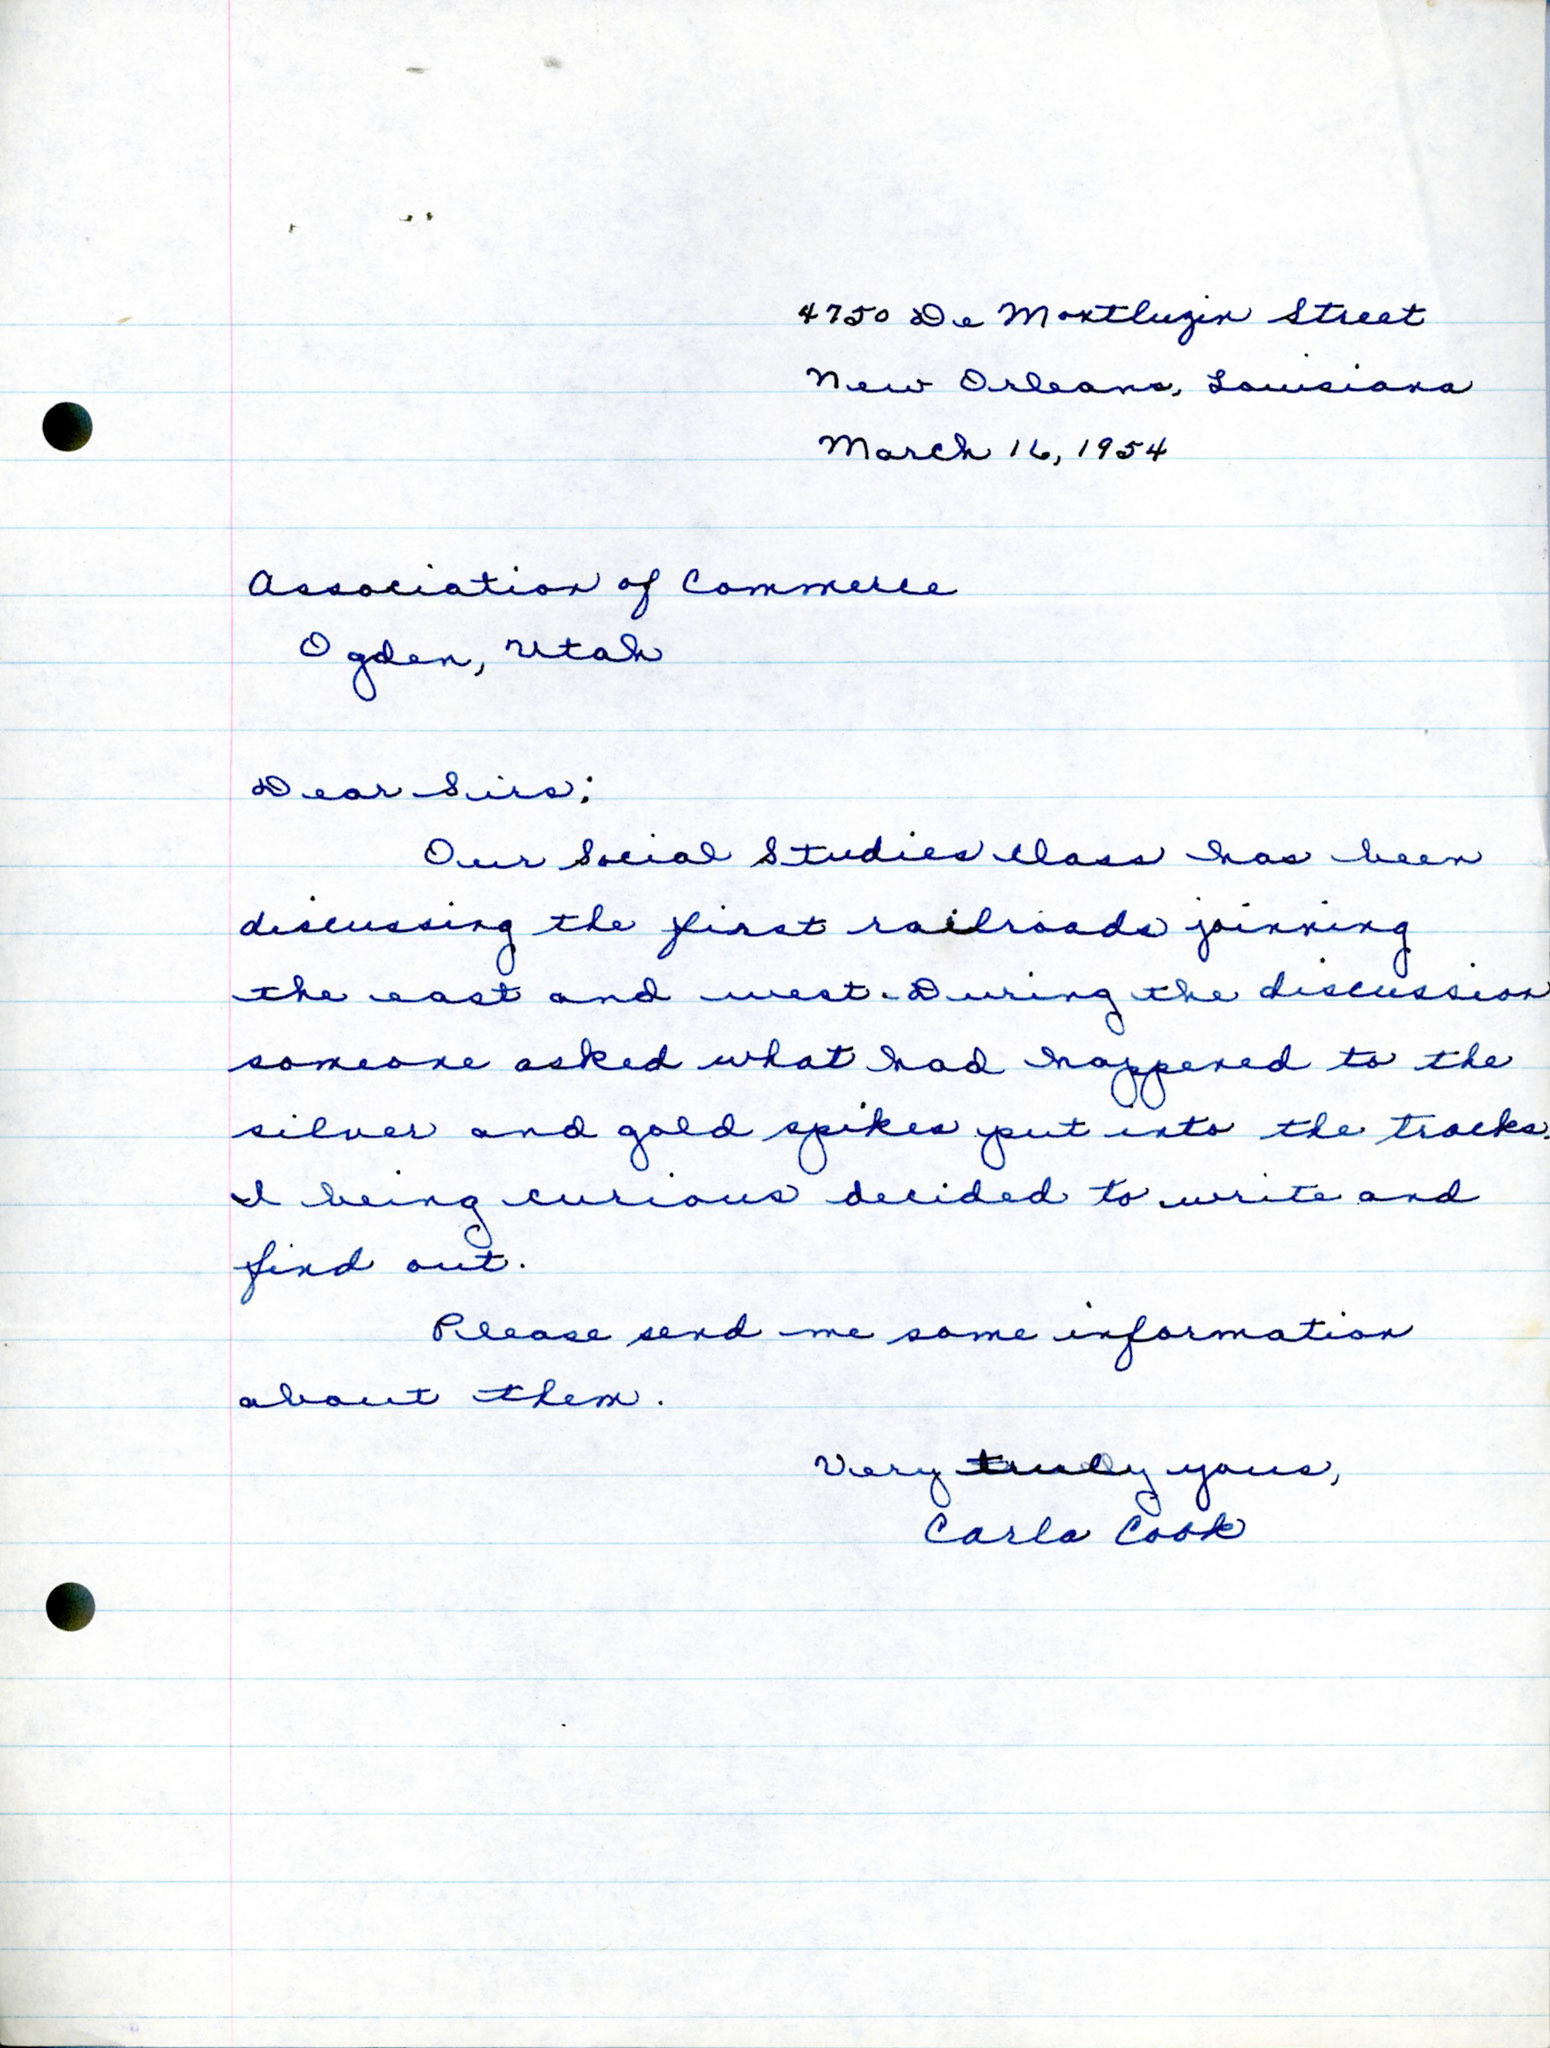 4750 De Montluzin Street
New Orleans, Louisiana
March 16, 1954
Association of Commerce
Ogden, Utah
Dear Sirs:
Our Social Studies Class has been
discussing the first railroads joinning
the east and west. During the discussion
someone asked what had happened to the
silver and gold spikes put into the tracks.
I being curious decided to write and
find out.
Please send me some information
about them.
Very truly yours,
Carla Cook